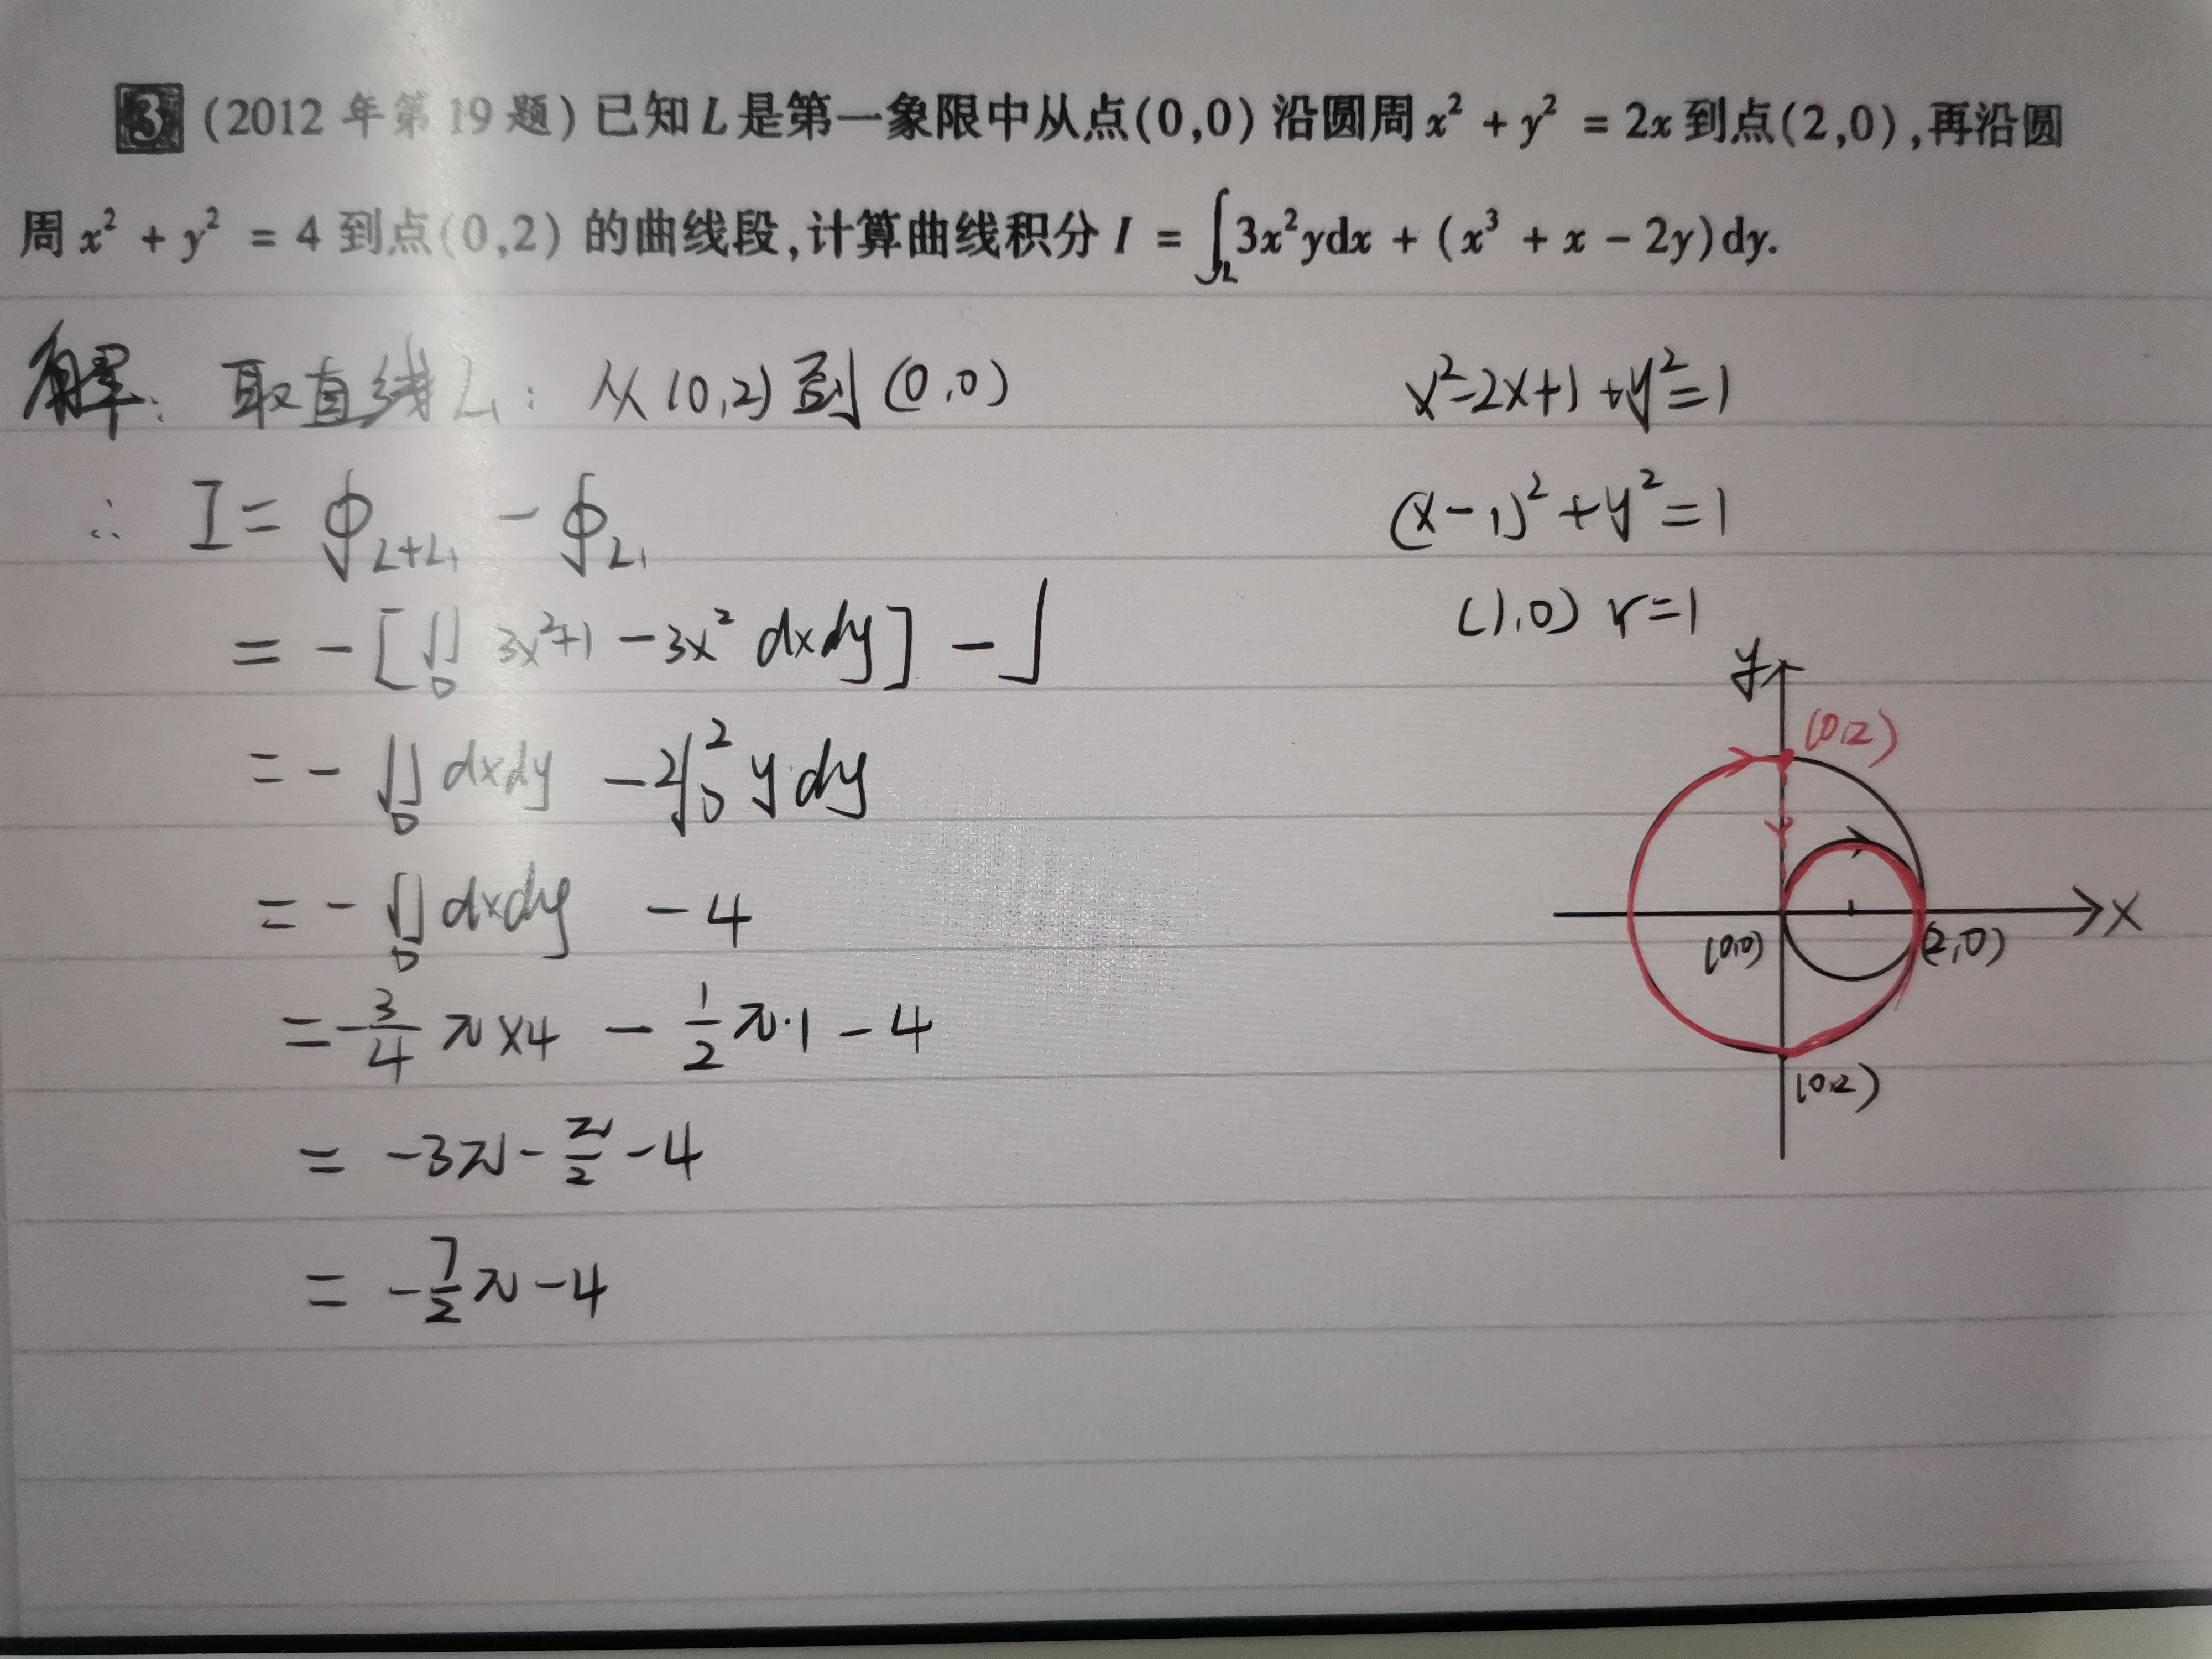 3 (2012 年第 19 题) 已知 L 是第一象限中从点(0,0) 沿圆周 x² + y² = 2x 到点(2,0),再沿圆
周 x² + y² = 4 到点(0,2) 的曲线段,计算曲线积分 I = ∫_L 3x²ydx + (x³ + x − 2y)dy.
解: 取直线 L₁: 从 (0,2) 到 (0,0)
∴ I = ∮_{L+L₁} − ∮_{L₁}
= −[∬_D 3x²+1 − 3x² dxdy] − ∫
= − ∬_D dxdy − 2∫₀² y dy
= − ∬_D dxdy − 4
= −3/4 π×4 − 1/2 π·1 − 4
= −3π − π/2 − 4
= −7/2 π − 4
x²−2x+1+y²=1
(x−1)²+y²=1
(1,0) r=1
y
(0,2)
x
(0,0)
(2,0)
(0,2)